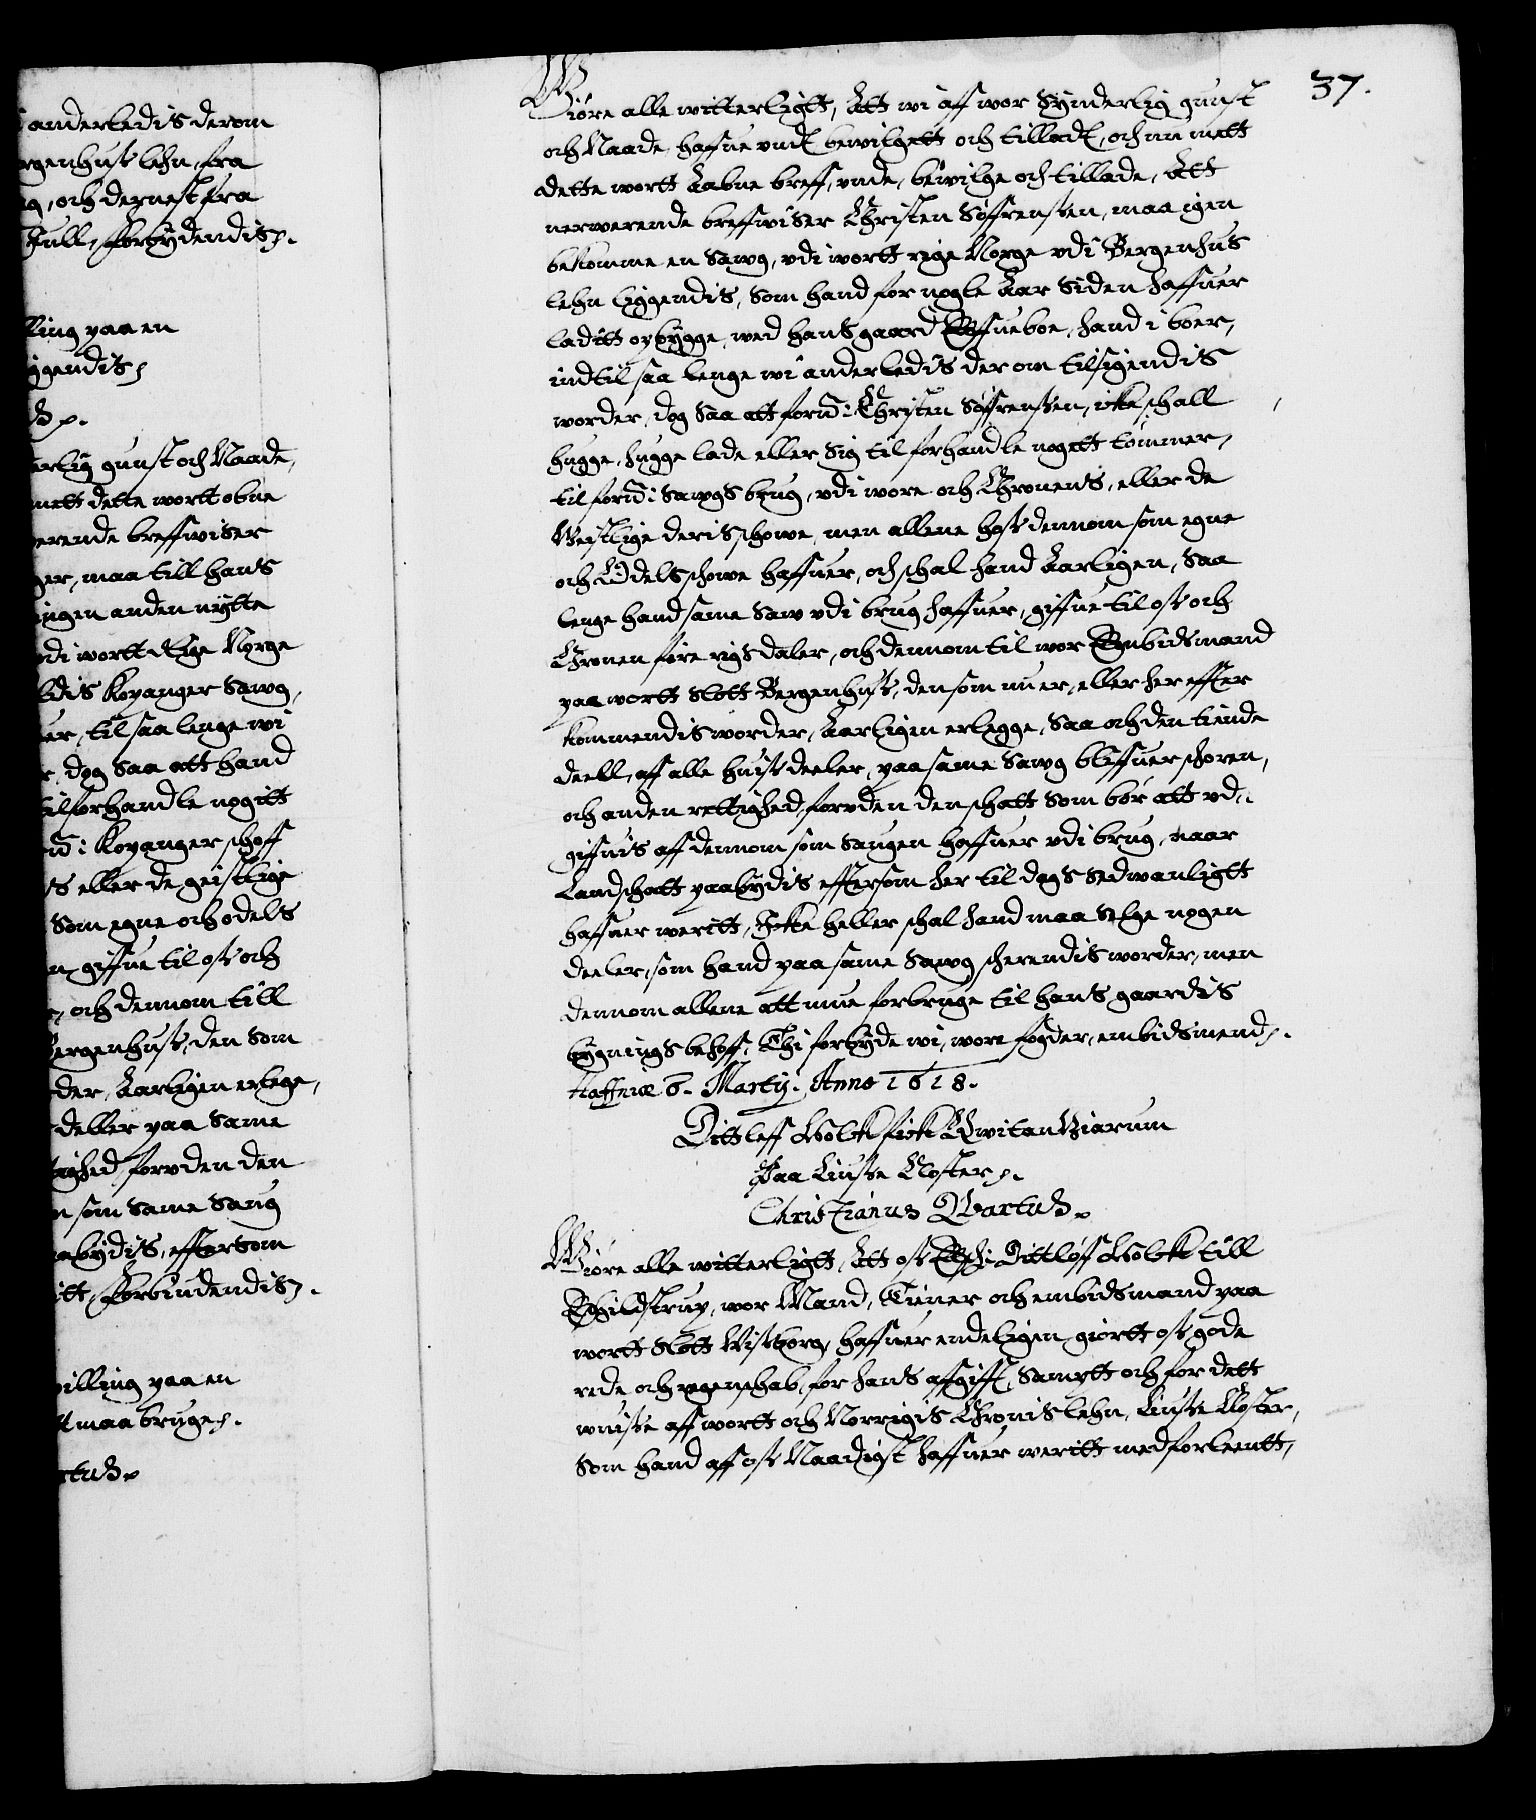 anderledis derom
rgenhus lehn, fra
og, och dernest fra
Jull, forbydendis.
lling paa en
ygendis
erlig gunst och Naade,
mett dette wortt obne
erende breffuiser
ger, maa till hans
ingen anden nytte
vdi wortt Rige Norge
ldis Kopanger Sawg,
er, til saa lenge wi
r, dog Saa att hand
tilforhandle nogitt
Kopanger schoff
s eller de geistlige
Som egne och odels
n giffue til oss och
och dennom till
Bergenhuss, den Som
der, Aarligen erlege,
deller paa Same
tighed foruden den
som Same Saug
aabydis, effterSom
itt, Forbiudendis.
illing paa en
tt maa bruge.
rtus.
37.
Giøre alle witterligtt, Att wi aff wor Synderlig gunst
och Naade, haffue undt bewilgett och tilladt, och nu mett
dette wortt Aabne breff, unde, bewilge och tillade, Att
nerwerende breffuiser Christen Søffrensen, maa igen
bekomme en Sawg, vdi wortt rige Norge vdi Bergenhus
lehn liggendis, Som hand for nogle Aar Siden haffuer
laditt opbygge, wed hans gaard hand i boer,
indtil saa lenge wi anderledis der om tilsigendis
worder, dog Saa att forn: Christen Søffrensen, icke schall
hugge, hugge lade eller Sig til forhandle nogitt tømmer,
til forn: Sawgs brug, vdi wore och Chronens, eller de
Geistlige deris schowe, men allene hoss dennom som egne
och Odels schowe haffuer, och schal hand Aarligen, Saa
lenge hand same Saw vdi brug haffuer, giffue til oss och
Chronen fire rigs daler, och dennom til wor Embidsmand
paa wortt Slott Bergenhuss, den som nu er, eller her effter
kommendis worder, Aarligen erlegge, Saa och den tiende
deell, aff alle huss deeler, paa same Sawg bliffuer schoren,
och anden rettighed, foruden den schatt Som bør att vd-
giffuis aff dennom som Saugen haffuer vdi brug, naar
Landschatt paabydis effterSom her til dags Sedwanligtt
haffuer weritt, Icke heller schal hand maa Selge nogen
deeler, som hand paa same Sawg scherendis worder, men
dennom allene att mue forbruge til hans gaardis
bygnings behoff, Thi forbyde wi, wore fogder, embidsmend.
Haffniæ 6. Martij. Anno 1618.
Dittleff Holck fick Quitantziarum
Paa Liusse Closter.
Christianus Quartus.
Giøre alle witterligtt, Att oss Dittløff Holck till
wor Mand, Tiener och embidsmand paa
wortt Slott Wissborg, haffuer endeligen giortt oss gode
rede och regenschab, for hans affgifft, Sampt och for dett
wuisse aff wortt och Norrigis Chronis lehn, Liusse Closter,
Som hand aff oss Naadigst haffuer weritt med forleentt,